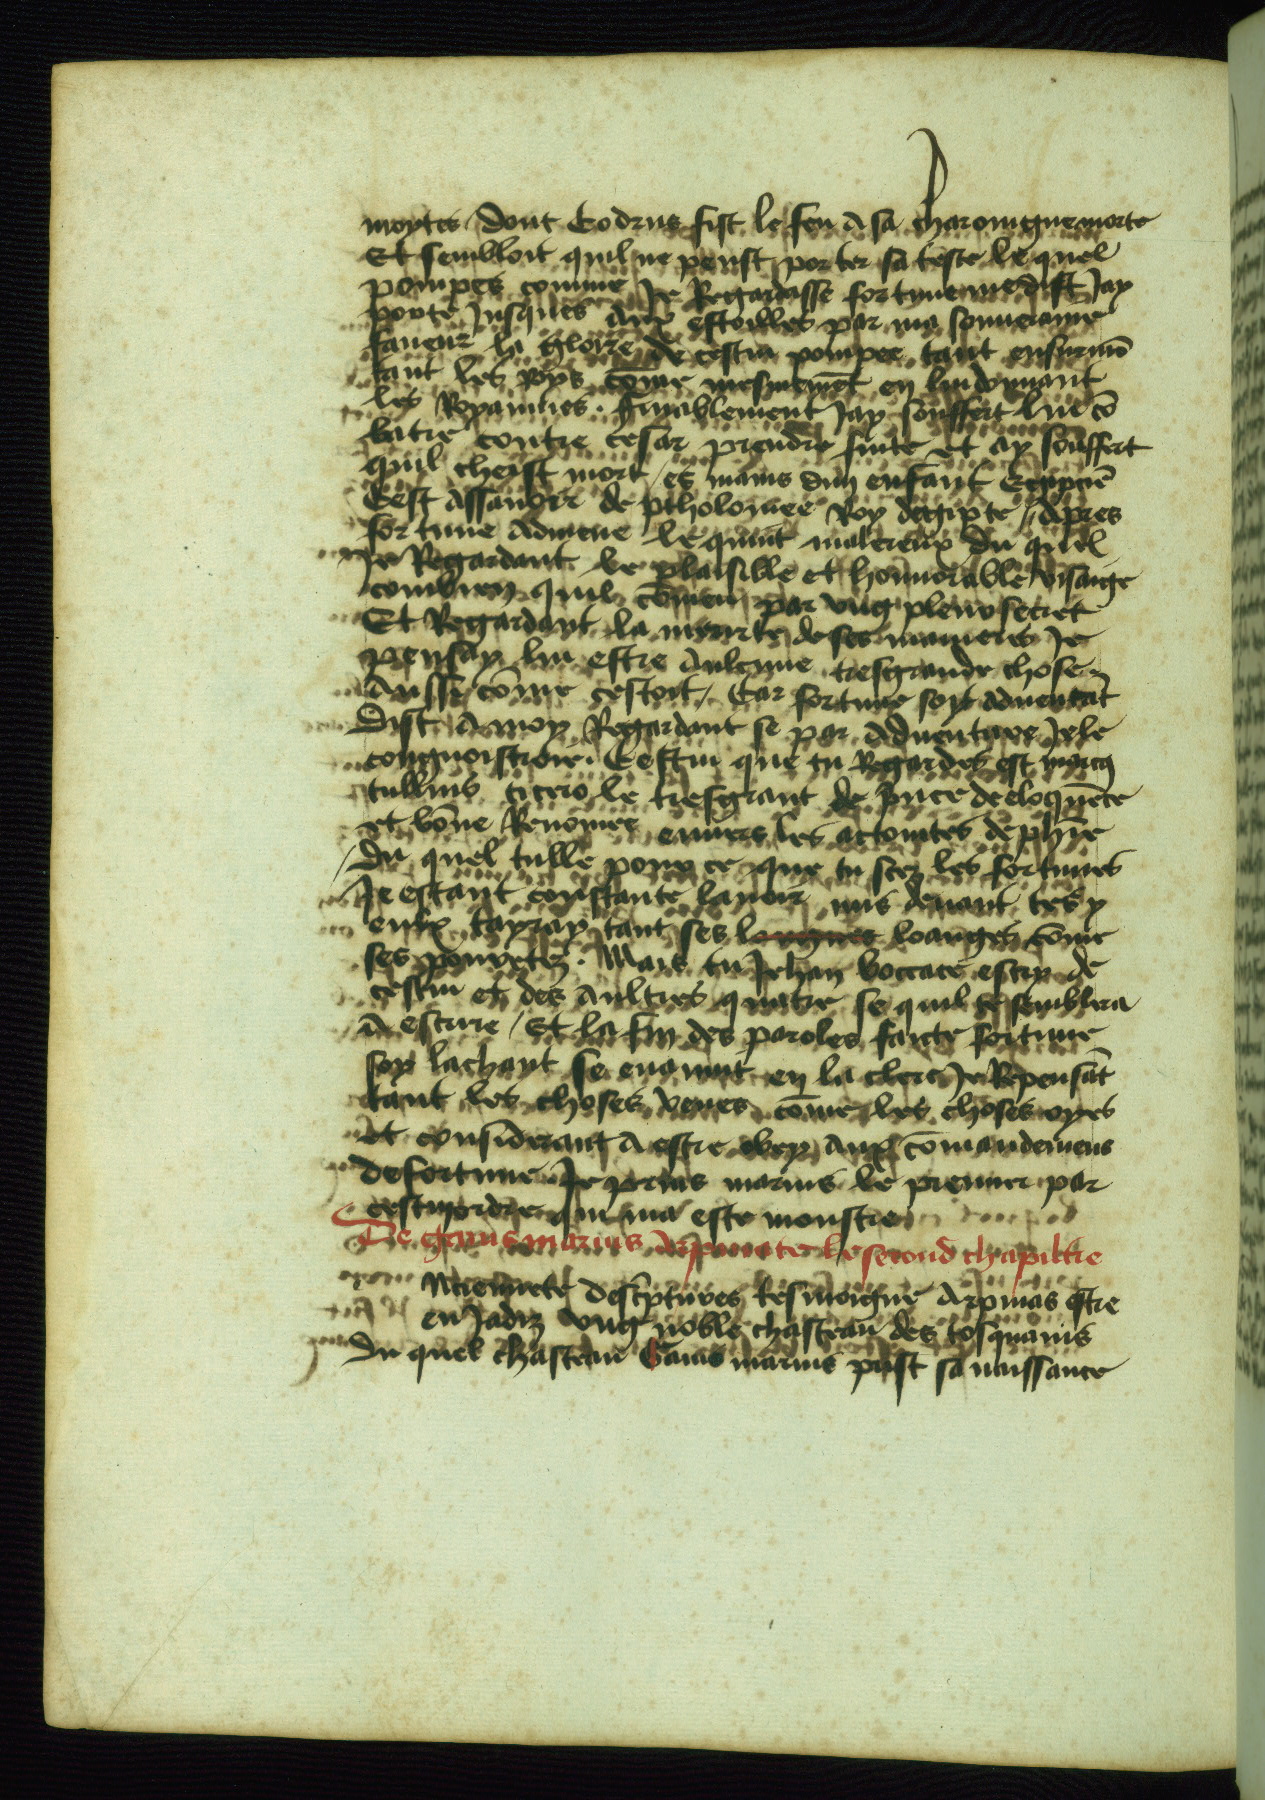 moytes / dont Codrus fist le feu a sa charoingne morte
Et sembloit quil ne peust porter sa teste le quel
pompee comme Je Regardasse fortune me dist Jay
porte Jusques aux estoilles par ma souueraine
faueur la gloire de cestui pompee tant en surmō
tant les roys cōme mesmemēt en lui donnant
les Royaumes . finablement Jay souffert lui cō
batre contre cesar prendre fuite et ay souffert
quil cheist mort / es mains dun enfant egipciē
Cest assauoir de ptholomee Roy degipte // Apres
fortune admene le quint malereux du quel
Je Regardant le plaisible et honnorable visaige
combien quil
Et Regardant la meurte de ses manieres Je
pensay lui estre aulcune tresgrande chose
Aussi cōme cestoit / Car fortune soy aduentāt
Dist a moy Regardant se par aduenture Je le
congnoistroie . Cestui que tu Regardes est
tullius cicero le tresgrant de prince de eloquēce
et bōne Renomee enuers les de phīe
Du quel tulle pour ce que tu scez les fortunes
Je estant constante lauoir mis deuant tes y
eulx tayray tant ses loanges cōme
ses pouretez . Mais tu Jehan boccace escry de
cestui et des aultres quatre se quil te semblera
a escrire / Et la fin des paroles faicte fortune
soy lachant se euanuit en la clere Je Repensāt
tant les choses veues cōme les choses oyes
et considerant a estre obey aux cōmandemens
de fortune Je prins marius le premier par
cest mordre qui ma este monstre
De gaius marius Arpinate le second chapiltre
Ncienнete descriptures tesmoigne Arpinas estre
en Jadiz vng noble chasteau des tosquanis
Du quel chasteau Gaius marius prist sa naissance